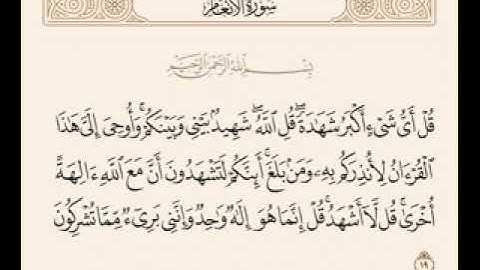 سُورَةُ الأَنْعَامِ
بِسْمِ اللَّهِ الرَّحْمَٰنِ الرَّحِيمِ
قُلْ أَيُّ شَيْءٍ أَكْبَرُ شَهَٰدَةً ۖ قُلِ ٱللَّهُ ۖ شَهِيدٌۢ بَيْنِي وَبَيْنَكُمْ ۚ وَأُوحِيَ إِلَيَّ هَٰذَا
ٱلْقُرْءَانُ لِأُنذِرَكُم بِهِۦ وَمَنۢ بَلَغَ ۚ أَئِنَّكُمْ لَتَشْهَدُونَ أَنَّ مَعَ ٱللَّهِ ءَالِهَةً
أُخْرَىٰ ۚ قُل لَّآ أَشْهَدُ ۚ قُلْ إِنَّمَا هُوَ إِلَٰهٌ وَٰحِدٌ وَإِنَّنِي بَرِيٓءٌ مِّمَّا تُشْرِكُونَ
١٩